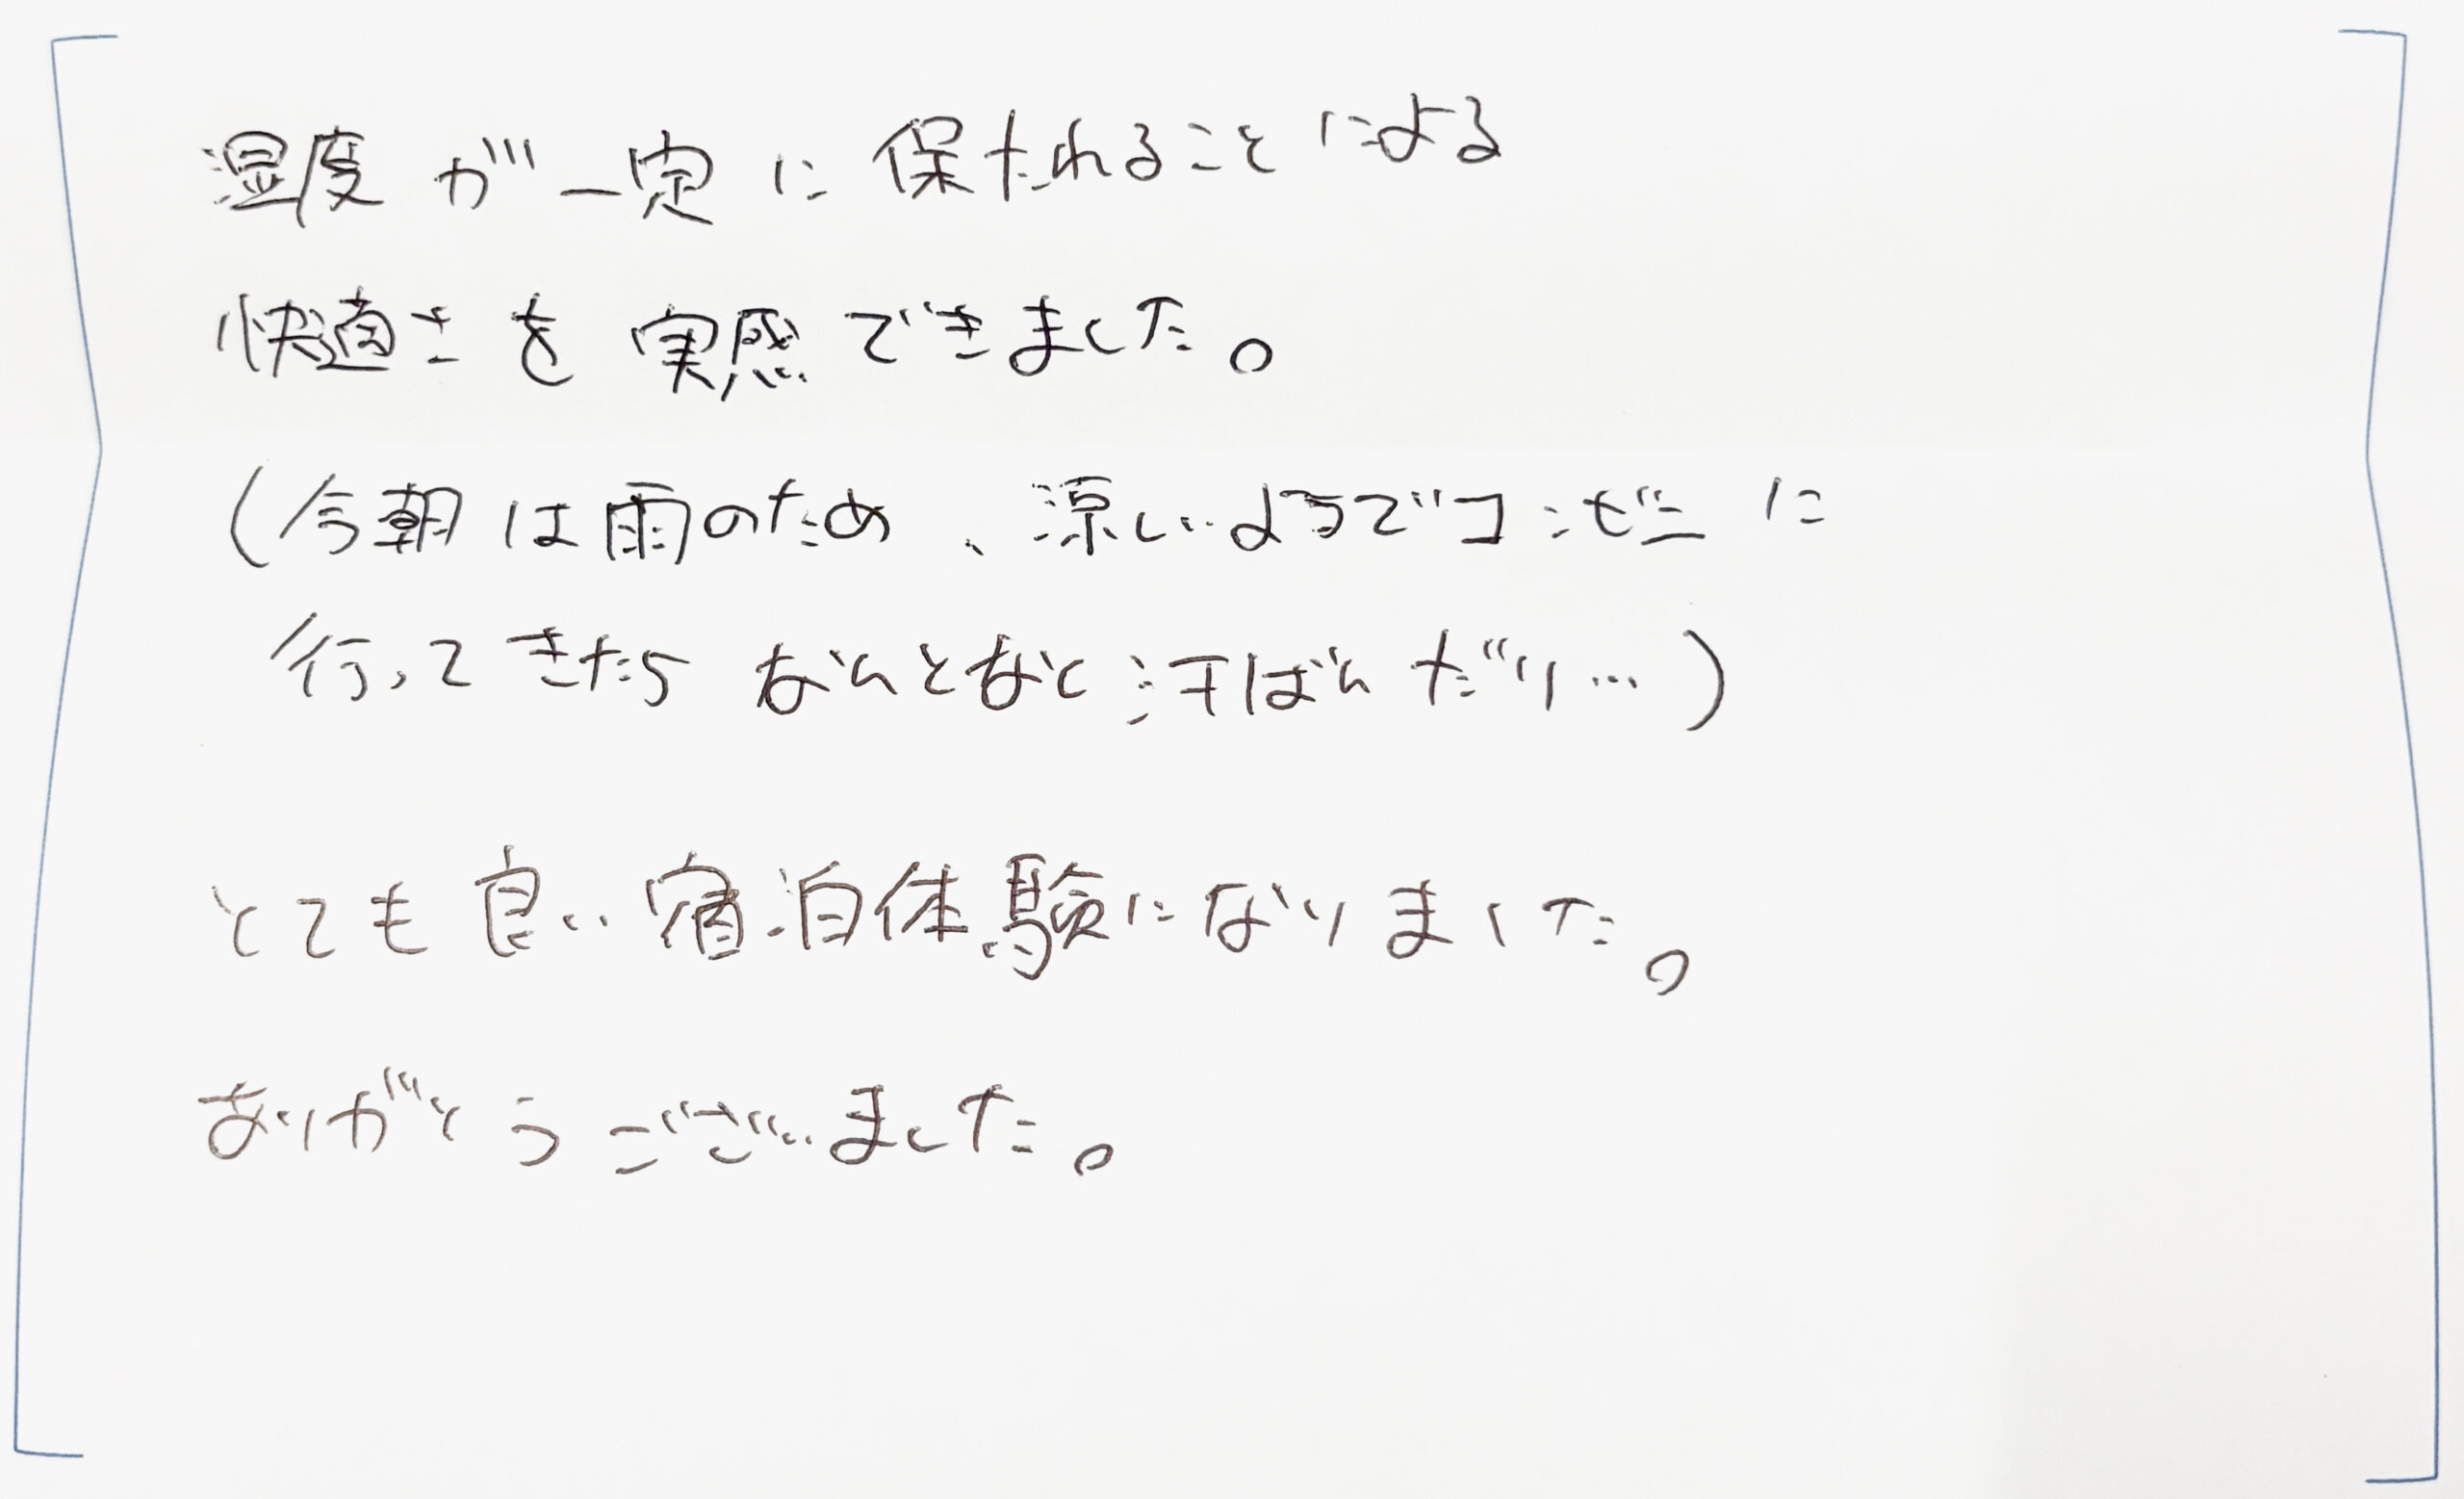 湿度が一定に保たれることによる
快適さを実感できました。
(今朝は雨のため、涼しいようでコンビニに
行ってきたらなんとなく汗ばんだり…)
とても良い宿泊体験になりました。
ありがとうございました。